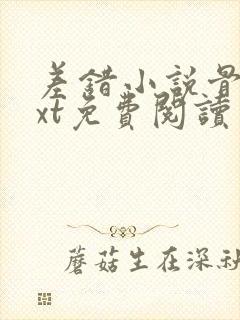 差錯小説
xt免費閱讀
蘑菇生在深